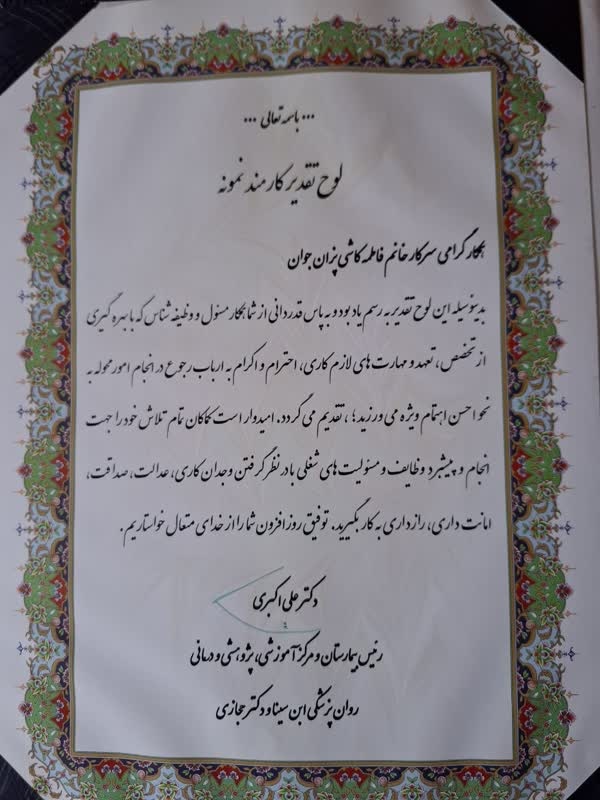 ... باسمه تعالی ...
لوح تقدیر کارمند نمونه
همکار گرامی سرکار خانم فاطمه کاشی پزان جوان
بدینوسیله این لوح تقدیر به رسم یادبود و به پاس قدردانی از شما همکار مسئول و وظیفه شناس که با بهره گیری
از تخصص، تعهد و مهارت های لازم کاری، احترام و اکرام به ارباب رجوع در انجام امور محوله به
نحو احسن اهتمام ویژه می ورزید؛ ، تقدیم می گردد. امیدوار است کماکان تمام تلاش خود را جهت
انجام و پیشبرد وظایف و مسئولیت های شغلی با در نظر گرفتن وجدان کاری، عدالت، صداقت،
امانت داری، رازداری به کار بگیرید. توفیق روز افزون شما را از خدای متعال خواستاریم.
دکتر علی اکبری
رئیس بیمارستان و مرکز آموزشی، پژوهشی و درمانی
روان پزشکی ابن سینا و دکتر حجازی